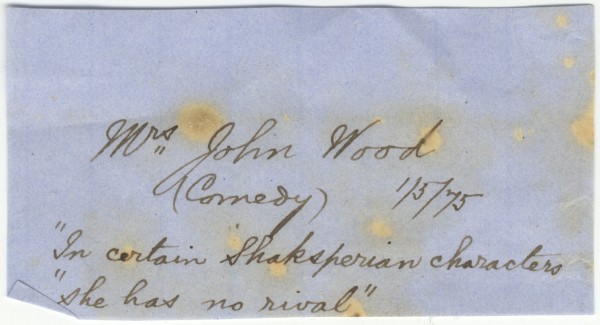 Mrs John Wood
(Comedy) 1/5/75
"In certain Shaksperian characters
"she has no rival"